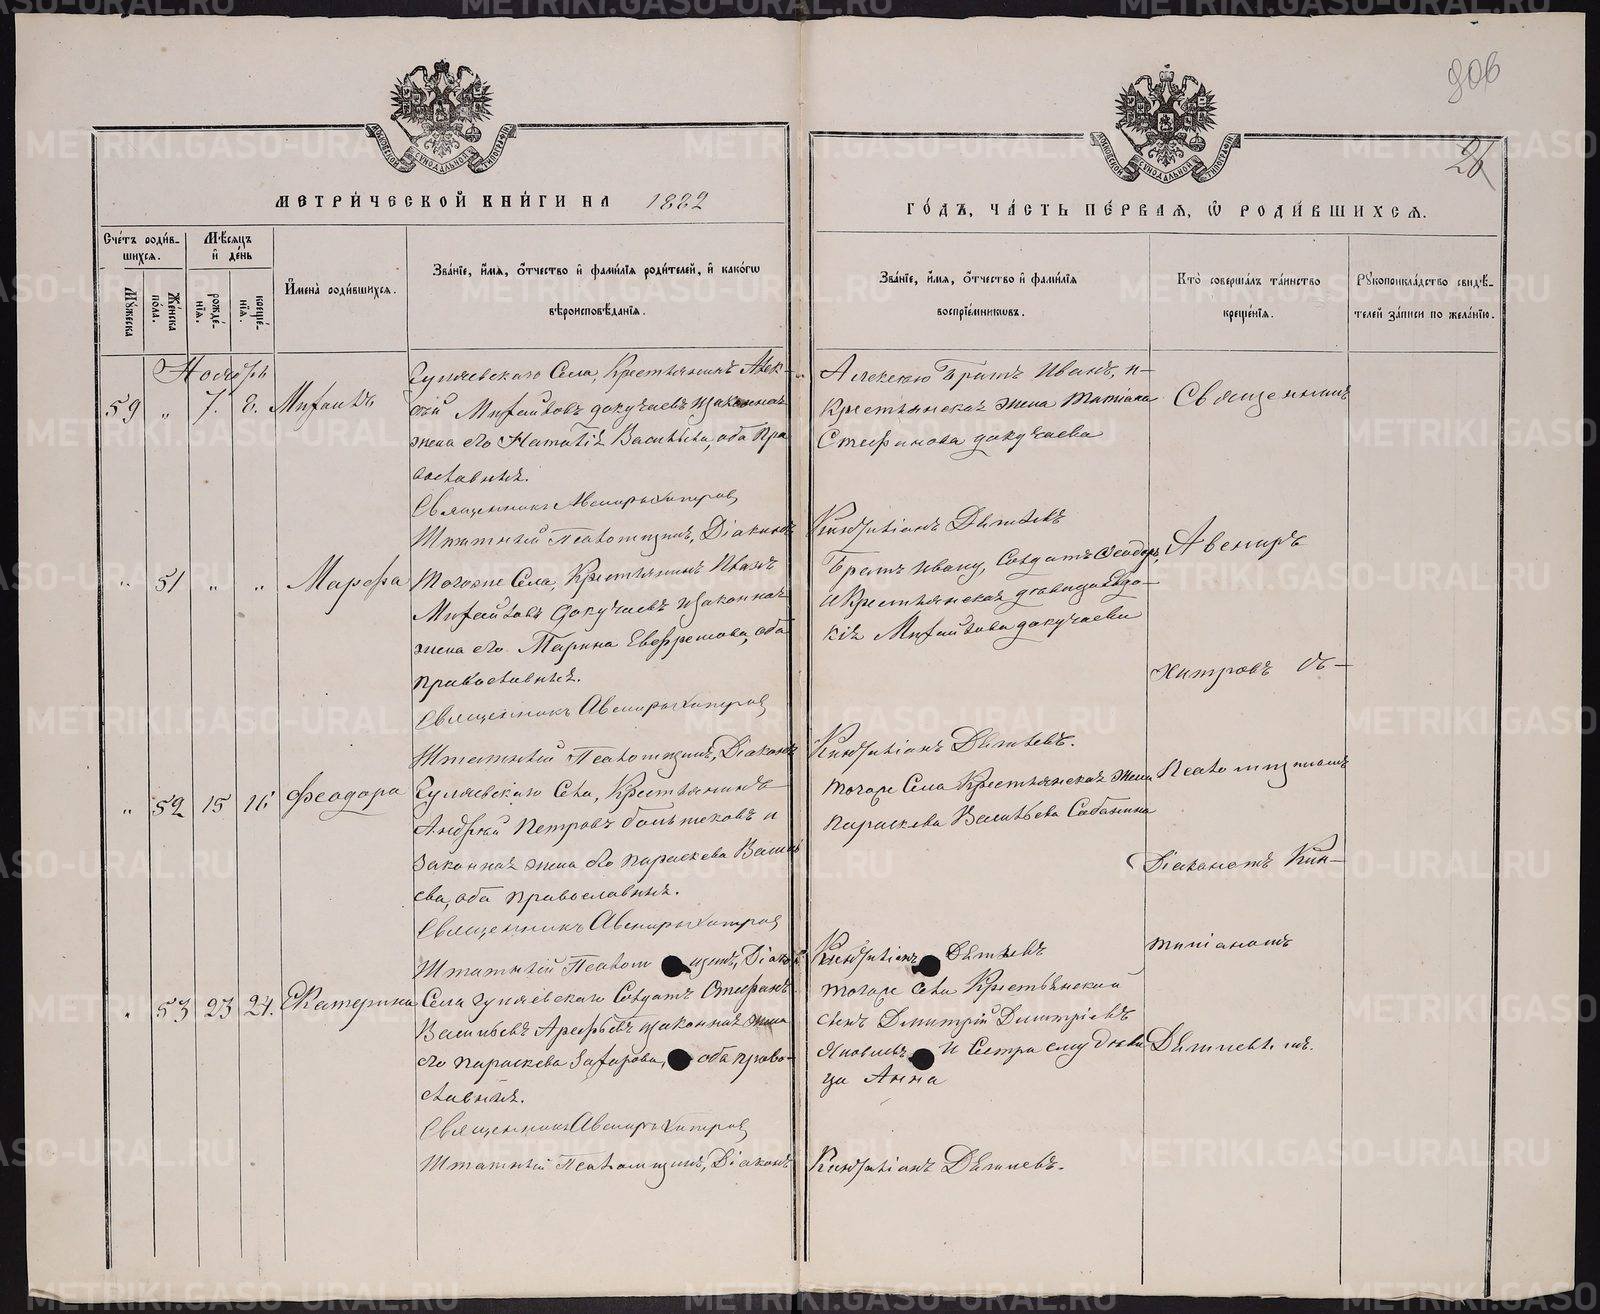 806
26
МЕТРИ́ЧЕСКОЙ КНИ́ГИ НА 1882
ГО́ДЪ, ЧА́СТЬ ПЕ́РВАЯ, Ѽ РОДИ́ВШИХСЯ.
Сче́тъ роди́в-
шихся.
Мѣ́сяцъ
и҆ де́нь
Му́жеска
Же́нска
по́ла.
рожде́-
нїя.
креще́-
нїя.
И҆мена̀ роди́вшихся.
Зва́нїе, и҆́мя, ѻ҆́тчество и҆ фами́лїя роди́телей, и҆ како́гѡ
вѣроисповѣ́данїя.
Зва́нїе, и҆́мя, ѻ҆́тчество и҆ фами́лїя
воспрїе́мниковъ.
Кто̀ соверша́лъ та́инство
креще́нїя.
Рукоприкла́дство свидѣ́-
телей за́писи по жела́нїю.
Ноябрь
59 „ 7. 8. Михаилъ
Села, Крестьянинъ Алек-
сѣй Михайловъ Докучаевъ и законная
жена его Васильева, оба Пра
вославныя.
Священникъ Авениръ Хитровъ
Штатный Псаломщикъ, Діаконъ
Алексею Братъ Иванъ, и-
Крестьянская жена Татіана
Стефанова Докучаева
Священникъ
„ 51 „ „ Марѳа
Тогоже Села, Крестьянинъ Иванъ
Михайловъ Докучаевъ и законная
жена его Марина Евфремова, оба
православныя.
Священникъ Авениръ Хитровъ
Штатный Псаломщикъ, Діаконъ
Братъ Ивану, Солдатъ Ѳеодоръ,
и Крестьянская девица Евдо-
кія Михайлова Докучаева
Авениръ
Хитровъ съ-
„ 52 15 16 Феодора
Села, Крестьянинъ
Андрей Петровъ и
законная жена его Параскева Василь
ева, оба православныя.
Священникъ Авениръ Хитровъ
Штатный Псаломщикъ, Діаконъ
тогоже Села Крестьянская жена
Параскева Васильева
Псаломщикомъ
Діакономъ
„ 53 23 24. Екатерина
Села Солдатъ Стефанъ
Васильевъ Арефьевъ и законная жена
его Параскева Захарова, оба право-
славныя.
Священникъ Авениръ Хитровъ
Штатный Псаломщикъ, Діаконъ
тогоже села Крестьянский
сынъ Дмитрій Дмитріевъ
Яковлевъ И Сестра ему деви
ца Анна